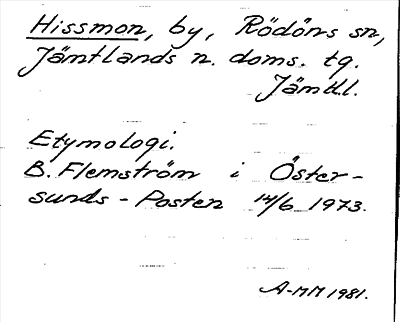 Hissmon, by, Rödöns sn,
Jämtlands n. doms. tg.
Jämtl.
Etymologi.
B. Flemström i Öster-
sunds-Posten 14/6 1973.
A-MM 1981.